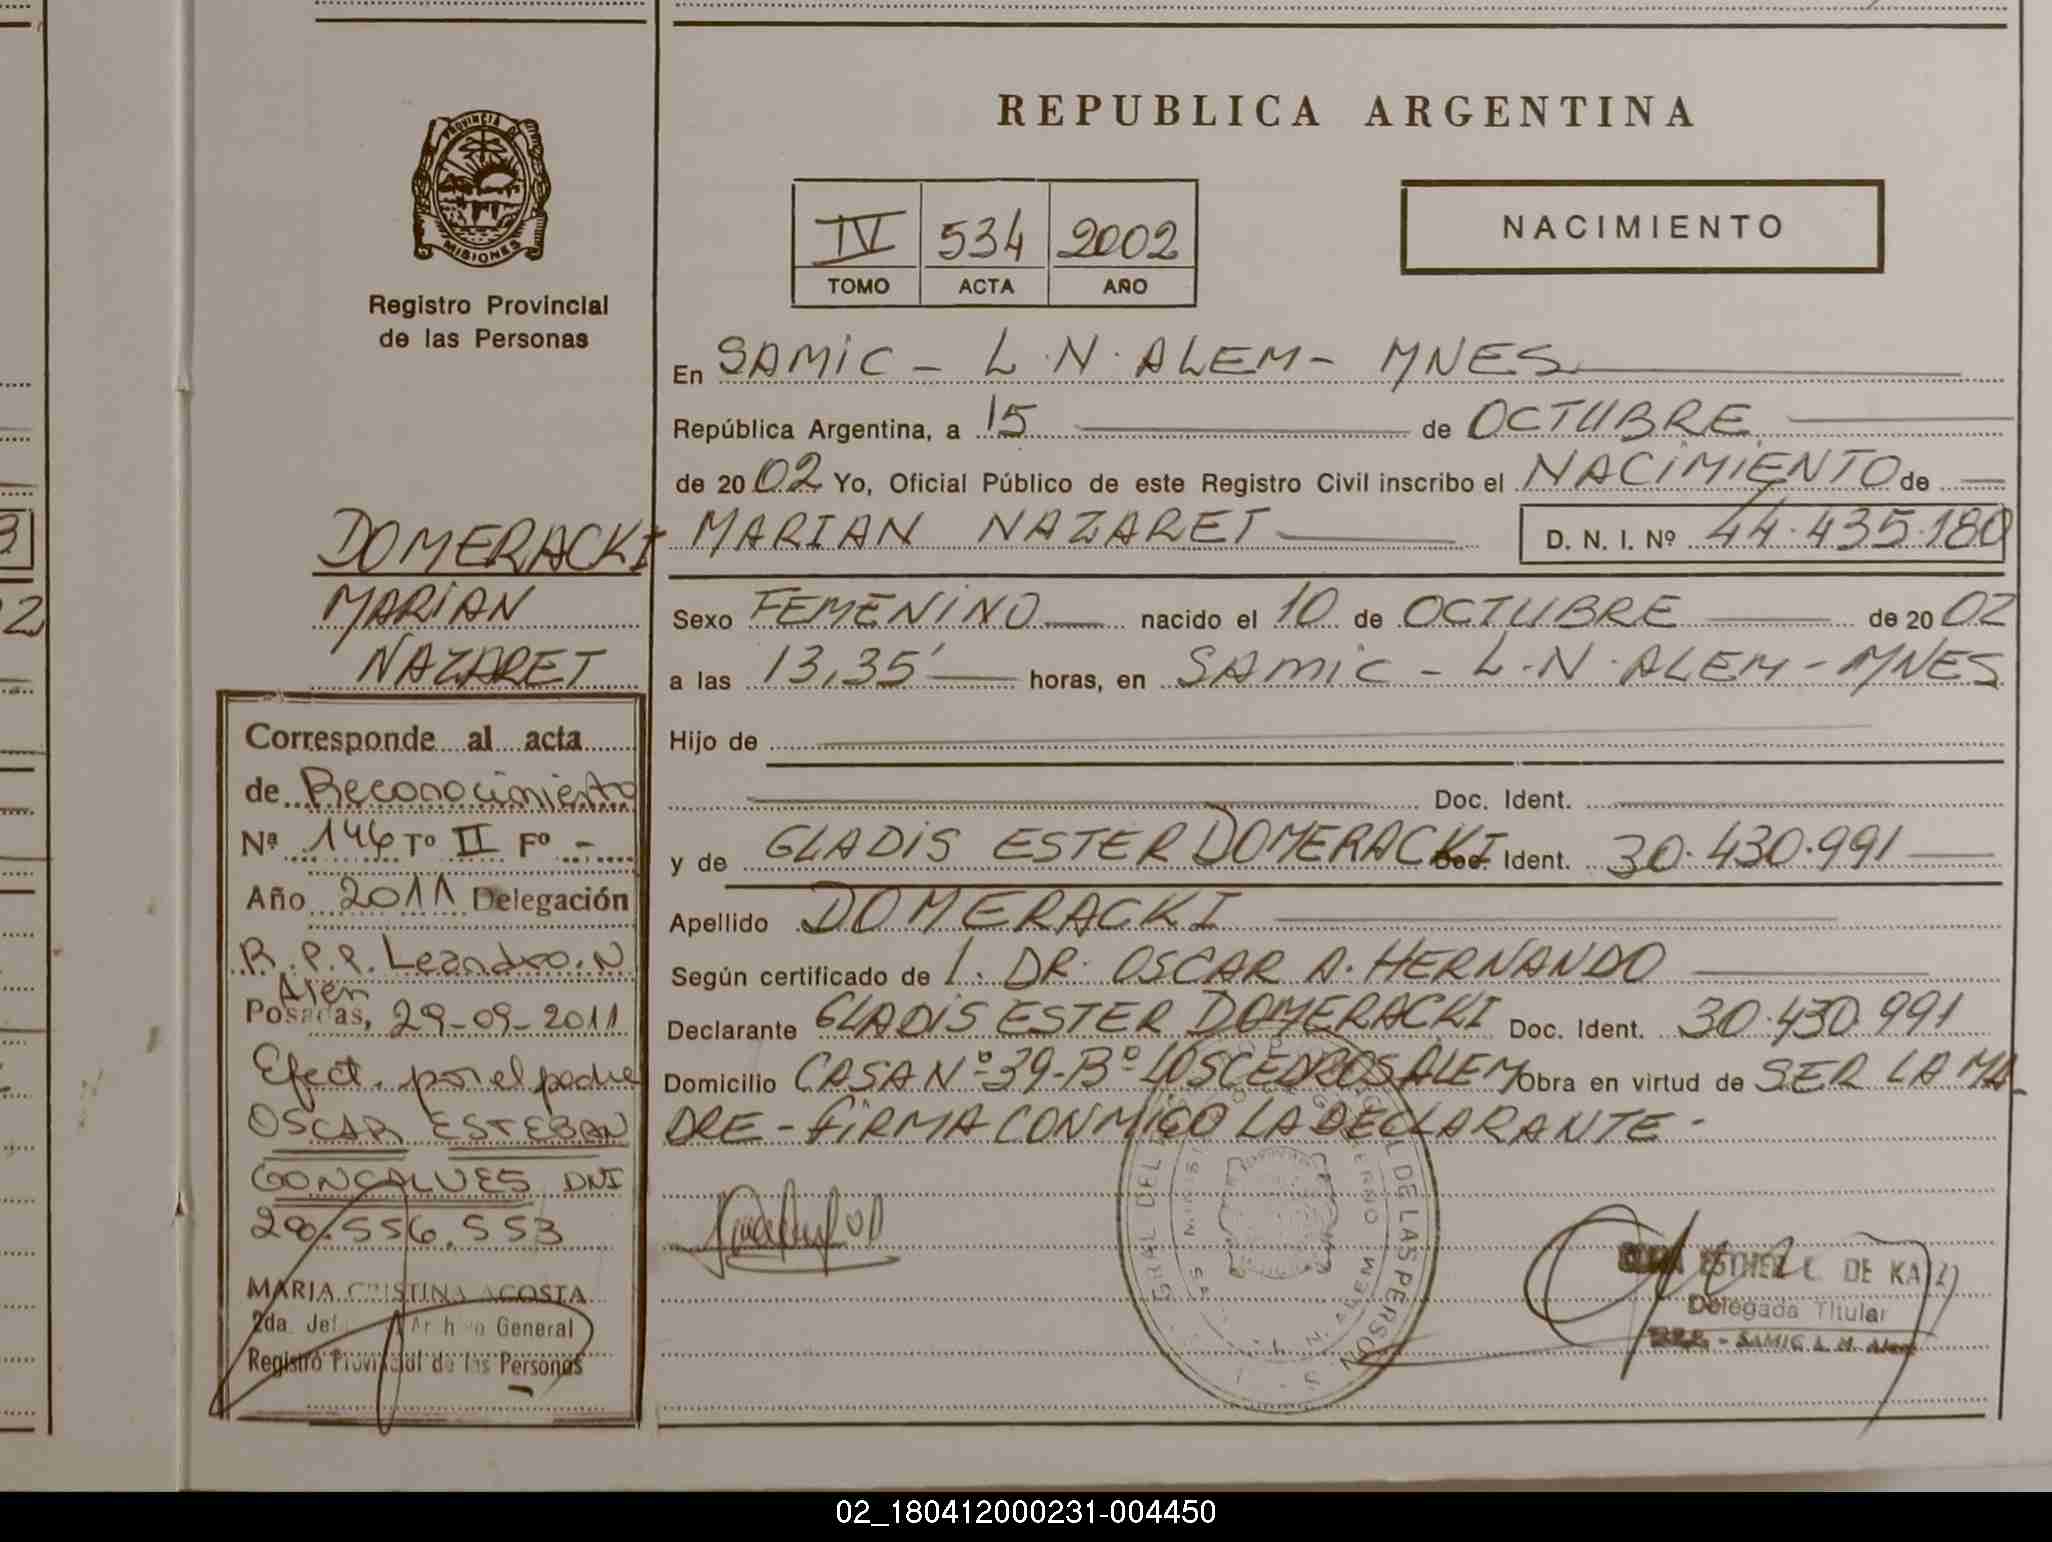 REPUBLICA ARGENTINA
PROVINCIA DE
MISIONES
Registro Provincial
de las Personas
IV 534 2002
TOMO ACTA AÑO
NACIMIENTO
En SAMIC - L.N. ALEM - MNES
República Argentina, a 15 de OCTUBRE
de 2002 Yo, Oficial Público de este Registro Civil inscribo el NACIMIENTO de
MARIAN NAZARET D. N. I. Nº 44.435.180
Sexo FEMENINO nacido el 10 de OCTUBRE de 2002
a las 13,35' horas, en SAMIC - L.N. ALEM - MNES
Hijo de
Doc. Ident.
y de GLADIS ESTER DOMERACKI Doc. Ident. 30.430.991
Apellido DOMERACKI
Según certificado de l. DR. OSCAR A. HERNANDO
Declarante GLADIS ESTER DOMERACKI Doc. Ident. 30.430.991
Domicilio CASA Nº 39-Bº LOS CEDROS ALEM Obra en virtud de SER LA MA-
DRE - FIRMA CONMIGO LA DECLARANTE -
ESTHER L. DE
Delegada Titular
SAMIC L. N. Alem
DOMERACKI
MARIAN
NAZARET
Corresponde al acta
de Reconocimiento
Nª 146 Tº II Fº -
Año 2011 Delegación
R.P.P. Leandro. N
Alen
Posadas, 29-09-2011
Efect. por el padre
OSCAR ESTEBAN
GONCALVES DNI
28.556.553
MARIA CRISTINA ACOSTA
2da. Jefa Archivo General
Registro Provincial de las Personas
3
2
02_180412000231-004450